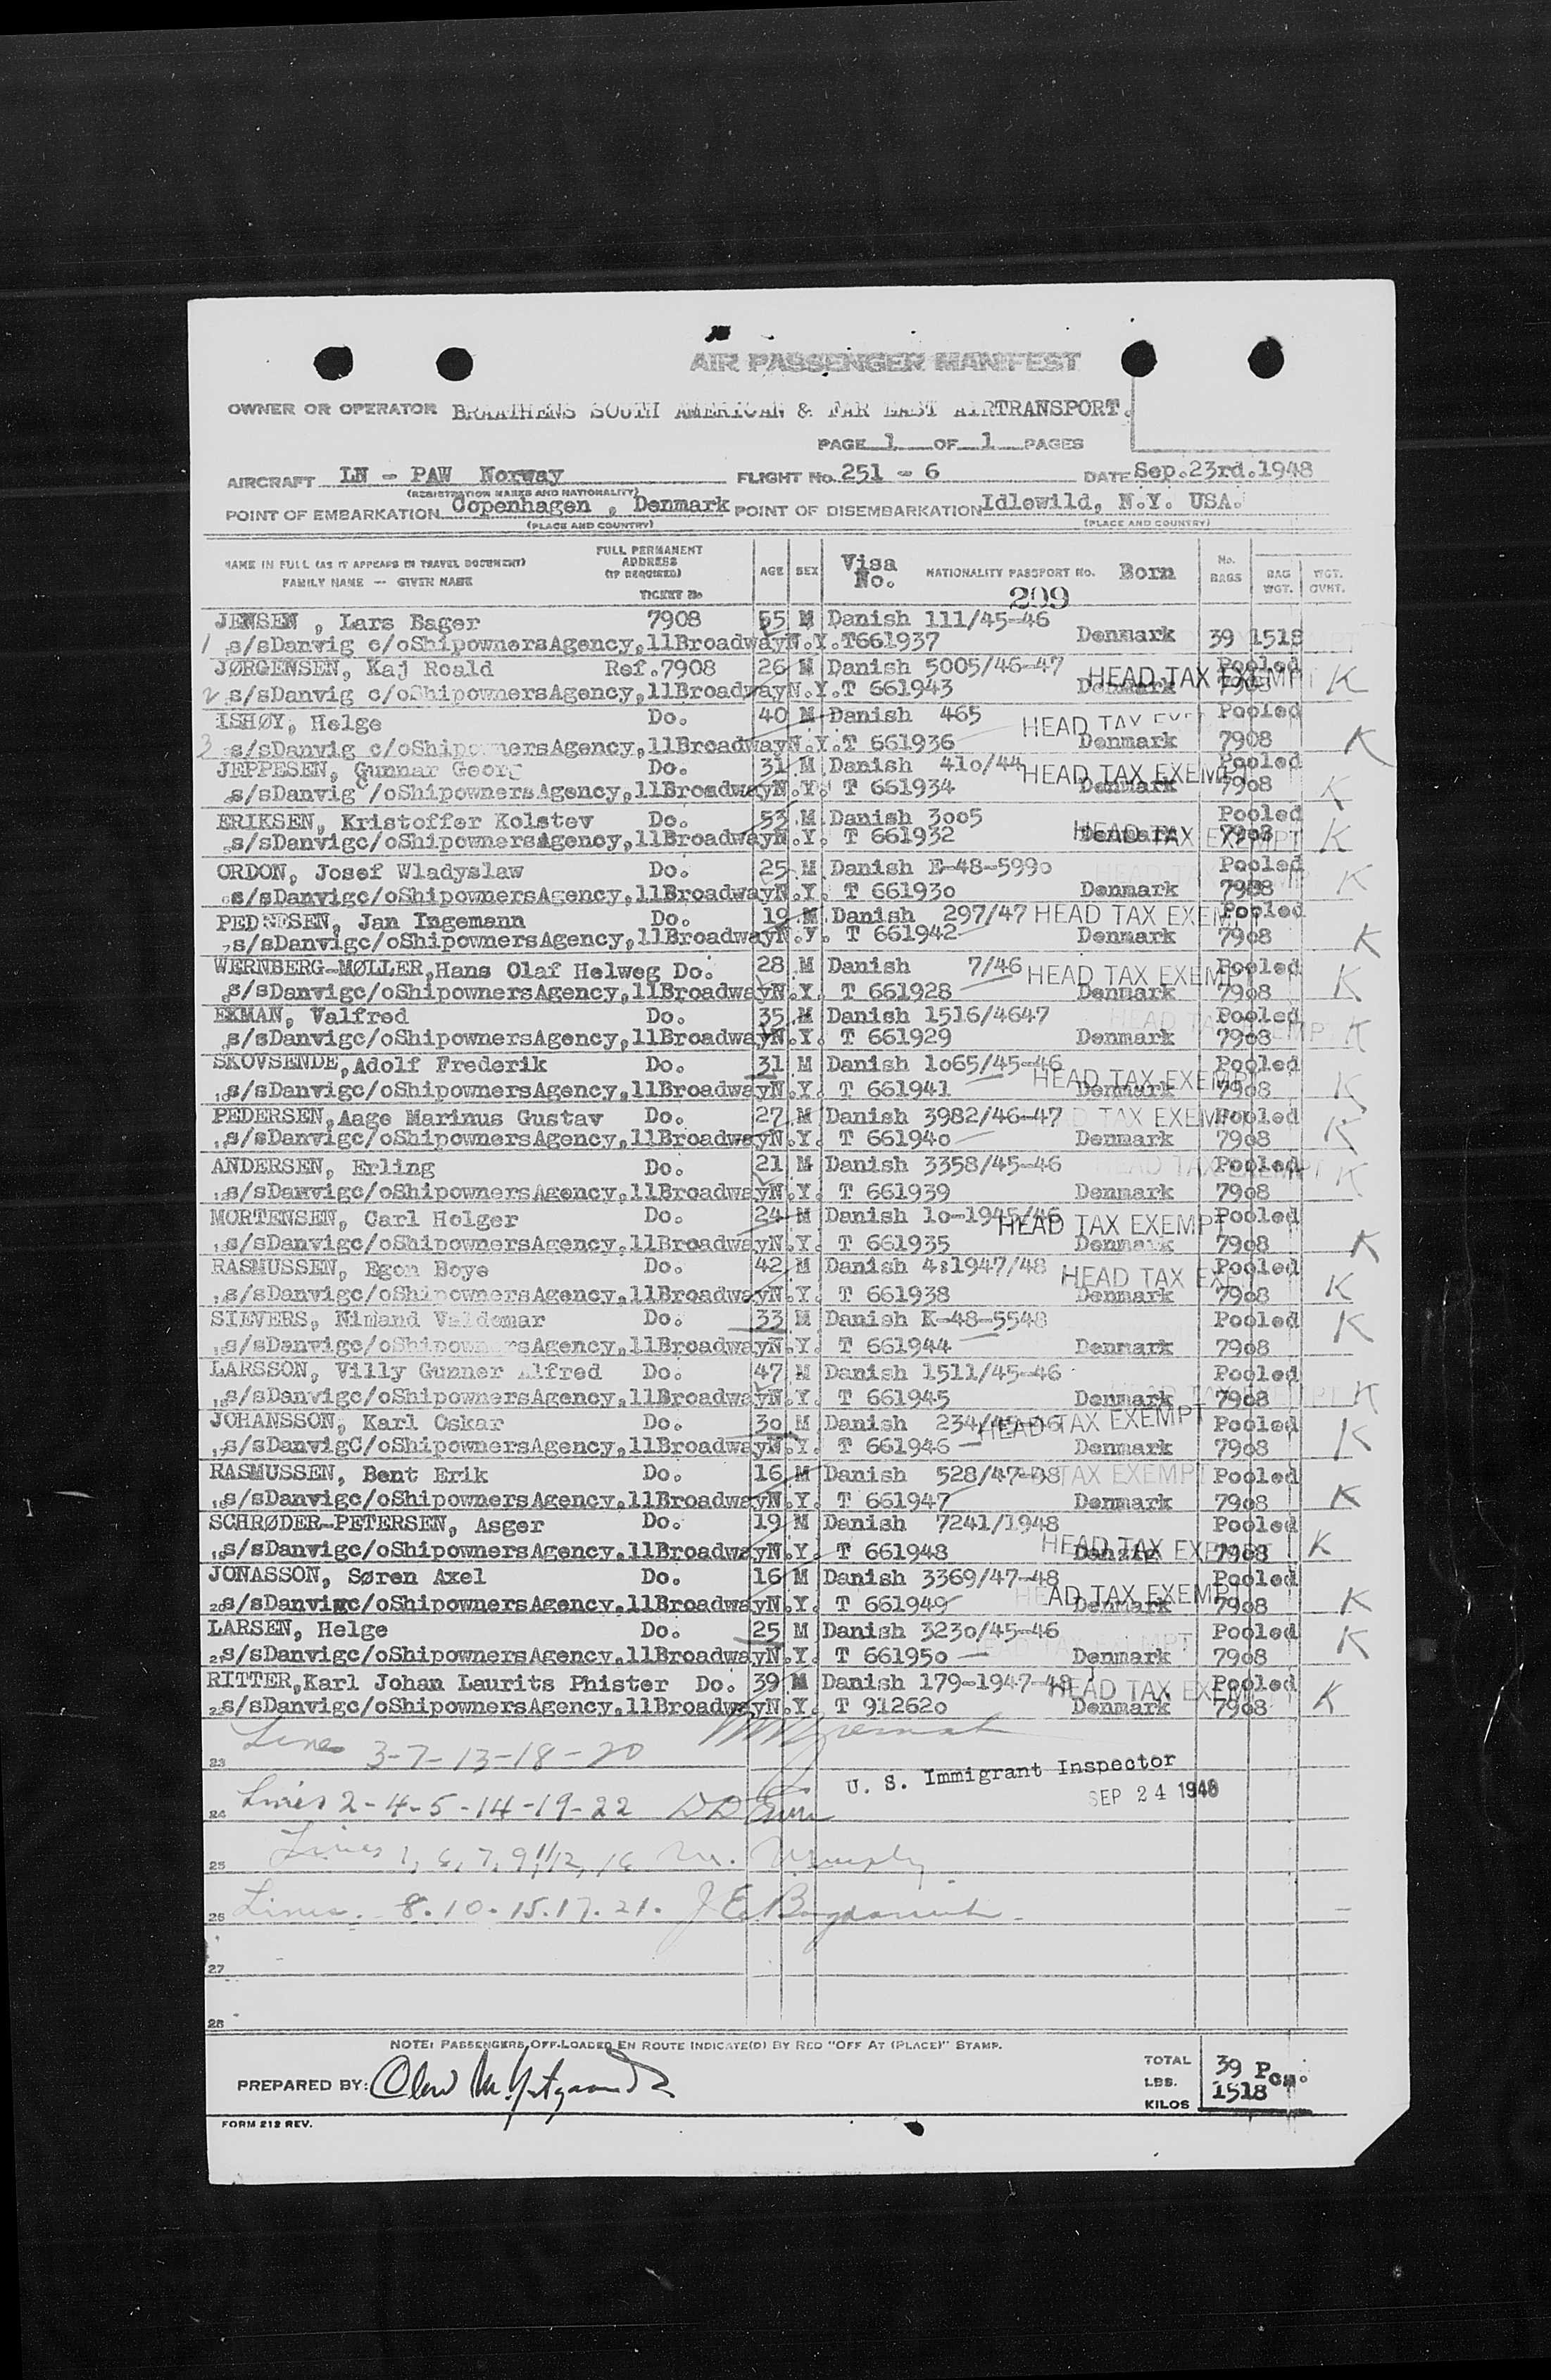 AIR PASSENGER MANIFEST
OWNER OR OPERATOR BRAATHENS SOUTH AMERICAN & FAR EAST AIRTRANSPORT.
PAGE 1 OF 1 PAGES
AIRCRAFT LN - PAW Norway FLIGHT No. 251 - 6 DATE Sep.23rd.1948
(REGISTRATION MARKS AND NATIONALITY)
POINT OF EMBARKATION Copenhagen , Denmark POINT OF DISEMBARKATION Idlewild, N.Y. USA.
(PLACE AND COUNTRY) (PLACE AND COUNTRY)
NAME IN FULL (AS IT APPEARS IN TRAVEL DOCUMENT) FAMILY NAME — GIVEN NAME FULL PERMANENT ADDRESS (IF REQUIRED) TICKET No AGE SEX Visa No. NATIONALITY PASSPORT No. Born No. BAGS BAG WGT. WGT. OVNT.
299
JENSEN , Lars Bager 7908 55 M Danish 111/45-46
1 s/sDanvig c/oShipownersAgency,11BroadwayN.Y.T661937 Denmark 39 1518
JØRGENSEN, Kaj Roald Ref.7908 26 M Danish 5005/46-47 HEAD TAX EXEMPT Pooled K
2 s/sDanvig c/oShipownersAgency,11BroadwayN.Y.T 661943 Denmark 7908
ISHØY, Helge Do. 40 M Danish 465 HEAD TAX Pooled
3 s/sDanvig c/oShipownersAgency,11BroadwayN.Y.T 661936 Denmark 7908 K
JEPPESEN, Gunnar Georg Do. 31 M Danish 41o/44 HEAD TAX EXEMPT Pooled
s/sDanvig C/oShipownersAgency,11BroadwayN.Y. T 661934 Denmark 79o8 K
ERIKSEN, Kristoffer Kolstev Do. 53 M Danish 3oo5 Pooled
5s/sDanvigc/oShipownersAgency,11BroadwayN.Y. T 661932 Denmark HEAD TAX EXEMPT 79o8 K
ORDON, Josef Wladyslaw Do. 25 M Danish E-48-599o Pooled
6s/sDanvigc/oShipownersAgency,11BroadwayN.Y. T 66193o Denmark 79o8 K
PEDERSEN, Jan Ingemann Do. 19 M Danish 297/47 HEAD TAX EXEM Pooled
7s/sDanvigc/oShipownersAgency,11BroadwayN.Y. T 661942 Denmark 79o8 K
WERNBERG-MØLLER,Hans Olaf Helweg Do. 28 M Danish 7/46 HEAD TAX EXEMPT Pooled K
8s/sDanvigc/oShipownersAgency,11BroadwayN.Y. T 661928 Denmark 79o8
EKMAN, Valfred Do. 35 M Danish 1516/4647 Pooled
9s/sDanvigc/oShipownersAgency,11BroadwayN.Y. T 661929 Denmark 79o8 K
SKOVSENDE,Adolf Frederik Do. 31 M Danish 1o65/45-46 HEAD TAX EXEMPT Pooled
10s/sDanvigc/oShipownersAgency,11BroadwayN.Y. T 661941 Denmark 79o8 K
PEDERSEN,Aage Marinus Gustav Do. 27 M Danish 3982/46-47 D TAX EXEM Pooled
11s/sDanvigc/oShipownersAgency,11BroadwayN.Y. T 66194o Denmark 79o8 K
ANDERSEN, Erling Do. 21 M Danish 3358/45-46 HEAD TAX EXEMPT Pooled K
12s/sDanvigc/oShipownersAgency,11BroadwayN.Y. T 661939 Denmark 79o8
MORTENSEN, Carl Holger Do. 24 M Danish 1o-1945/46 HEAD TAX EXEMPT Pooled
13s/sDanvigc/oShipownersAgency,11BroadwayN.Y. T 661935 Denmark 79o8 K
RASMUSSEN, Egon Boye Do. 42 M Danish 4:1947/48 HEAD TAX EXE Pooled
14s/sDanvigc/oShipownersAgency,11BroadwayN.Y. T 661938 Denmark 79o8 K
SIEVERS, Nimand Valdemar Do. 33 M Danish K-48-5548 Pooled K
15s/sDanvigc/oShipownersAgency,11BroadwayN.Y. T 661944 Denmark 79o8
LARSSON, Villy Gunner Alfred Do. 47 M Danish 1511/45-46 Pooled
16s/sDanvigc/oShipownersAgency,11BroadwayN.Y. T 661945 Denmark 79o8 K
JOHANSSON, Karl Oskar Do. 3o M Danish 234/45-46 HEAD TAX EXEMPT Pooled
17s/sDanvigC/oShipownersAgency,11BroadwayN.Y. T 661946 Denmark 79o8 K
RASMUSSEN, Bent Erik Do. 16 M Danish 528/47-48 TAX EXEMPT Pooled
18s/sDanvigc/oShipownersAgency.11BroadwayN.Y. T 661947 Denmark 79o8 K
SCHRØDER-PETERSEN, Asger Do. 19 M Danish 7241/1948 Pooled
19s/sDanvigc/oShipownersAgency.11BroadwayN.Y. T 661948 Danzig HEAD TAX EXEMPT 79o8 K
JONASSON, Søren Axel Do. 16 M Danish 3369/47-48 HEAD TAX EXEMPT Pooled
20s/sDanvigc/oShipownersAgency.11BroadwayN.Y. T 661949 Denmark 79o8 K
LARSEN, Helge Do. 25 M Danish 323o/45-46 Pooled K
21s/sDanvigc/oShipownersAgency.11BroadwayN.Y. T 66195o Denmark 79o8
RITTER,Karl Johan Laurits Phister Do. 39 M Danish 179-1947-48 HEAD TAX EXEMPT Pooled
22s/sDanvigc/oShipownersAgency.11BroadwayN.Y. T 91262o Denmark 79o8 K
23 Lines 3-7-13-18-20
U. S. Immigrant Inspector
24 Lines 2-4-5-14-19-22 SEP 24 1948
25 Lines 1, 6, 7, 9, 11, 12, 16 M. Murphy
26 Lines. 8.10.15.17.21.
27
28
NOTE: PASSENGERS OFF-LOADED EN ROUTE INDICATE(D) BY RED "OFF AT (PLACE)" STAMP.
PREPARED BY: TOTAL LBS. KILOS 39 Pcs. 1518
FORM 212 REV.